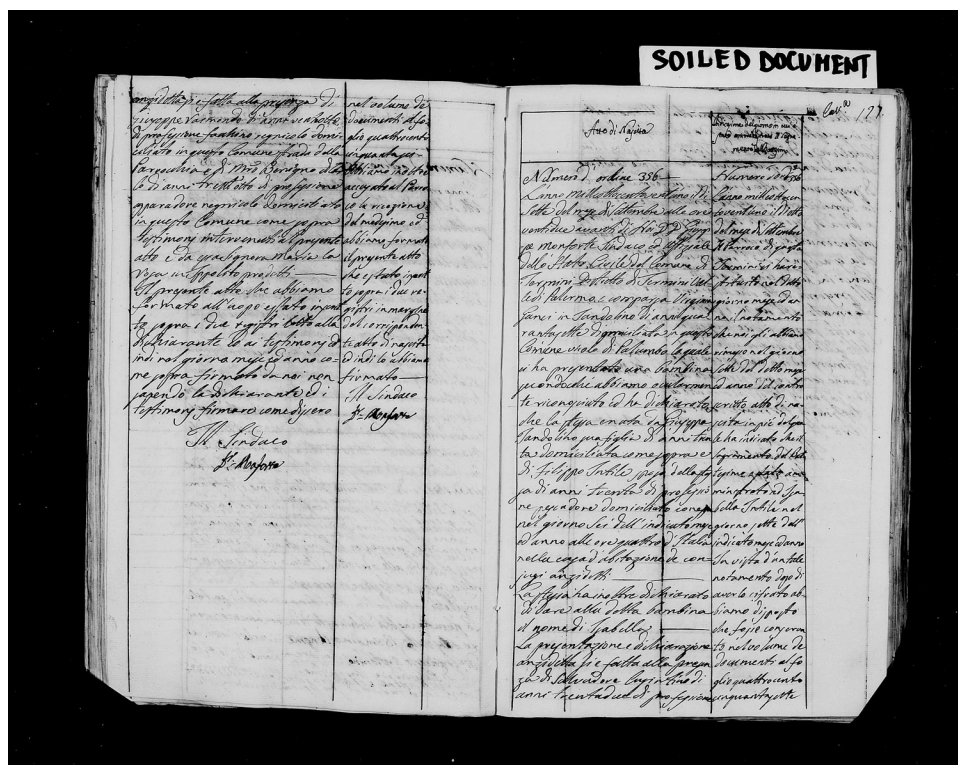 SOILED DOCUMENT
anzidetta si è fatta alla presenza di
Giuseppe
di professione regnicolo domi-
ciliato in questo Comune strada della
Parrocchia e di
lo di anni trentotto di professione
apparadore regnicolo domiciliato
in questo Comune come sopra
testimonj intervenuti al presente
atto e da essa signora Maria La
prodotti
Il presente atto che abbiamo
formato all'uopo è stato inscrit-
to sopra i due registri letto alla
dichiarante ed ai testimonj ed
indi nel giorno mese ed anno co-
me sopra firmato da noi non
sapendo la dichiarante ed i
testimonj firmare come dissero
Il Sindaco
Monforte
nel volume de
documenti al fo-
glio quattrocento
cinquanta
Abbiamo inoltre
accusato al Parro-
co la recezione
del medesimo ed
abbiamo formato
il presente atto
che è stato inscrit-
to sopra i due re-
gistri in margine
del corrisponden-
te atto di nascita
ed indi lo abbiamo
firmato
Il Sindaco
Monforte
127
Atto di Nascita
Numero d'ordine 356
L'anno milleottocentoventuno il dì
sette del mese di Settembre alle ore
ventidue avanti di Noi
pe Monforte Sindaco ed uffiziale
dello Stato Civile del Comune di
Termini Distretto di Termini Val-
le di Palermo è comparsa Virginia
in Sandolino di anni qua-
rantasette domiciliata in questo
Comune vicolo di Palumbo la quale
ci ha presentato una bambina
secondocchè abbiamo ocularmen-
te riconosciuto ed ha dichiarato
che la stessa è nata da Giuseppa
Sandolino sua figlia di anni tren-
ta domiciliata come sopra e
di Filippo Intile sposo della stes-
sa di anni trenta di professio-
ne pescadore domiciliato come sopra
nel giorno sei dell'indicato mese
ed anno alle ore quattro d'Italia
nella casa d'abitazione de con-
jugi anzidetti
La stessa ha inoltre dichiarato
di dare alla detta bambina
il nome di Isabella
La presentazione e dichiarazione
anzidetta si è fatta alla presen-
za di Salvadore di
anni trentadue di professione
Numero d'ordine 356
L'anno milleottocen-
toventuno il dì otto
del mese di Settembre
il Parroco di questa
Termini ci ha re-
stituito nel detto
giorno mese ed an-
no il notamento
che noi gli abbiamo
rimesso nel giorno
sette del detto mese
ed anno del contro-
scritto atto di na-
scita in piè del qua-
le ha indicato che il
Sagramento del Bat-
tesimo è stato am-
ministrato ad Isa-
bella Intile nel
giorno sette dell'
indicato mese ed anno
In vista d'un tale
notamento dopo di
averlo cifrato ab-
biamo disposto
che fosse conserva-
to nel volume de
documenti al fo-
glio quattrocento
cinquantasette